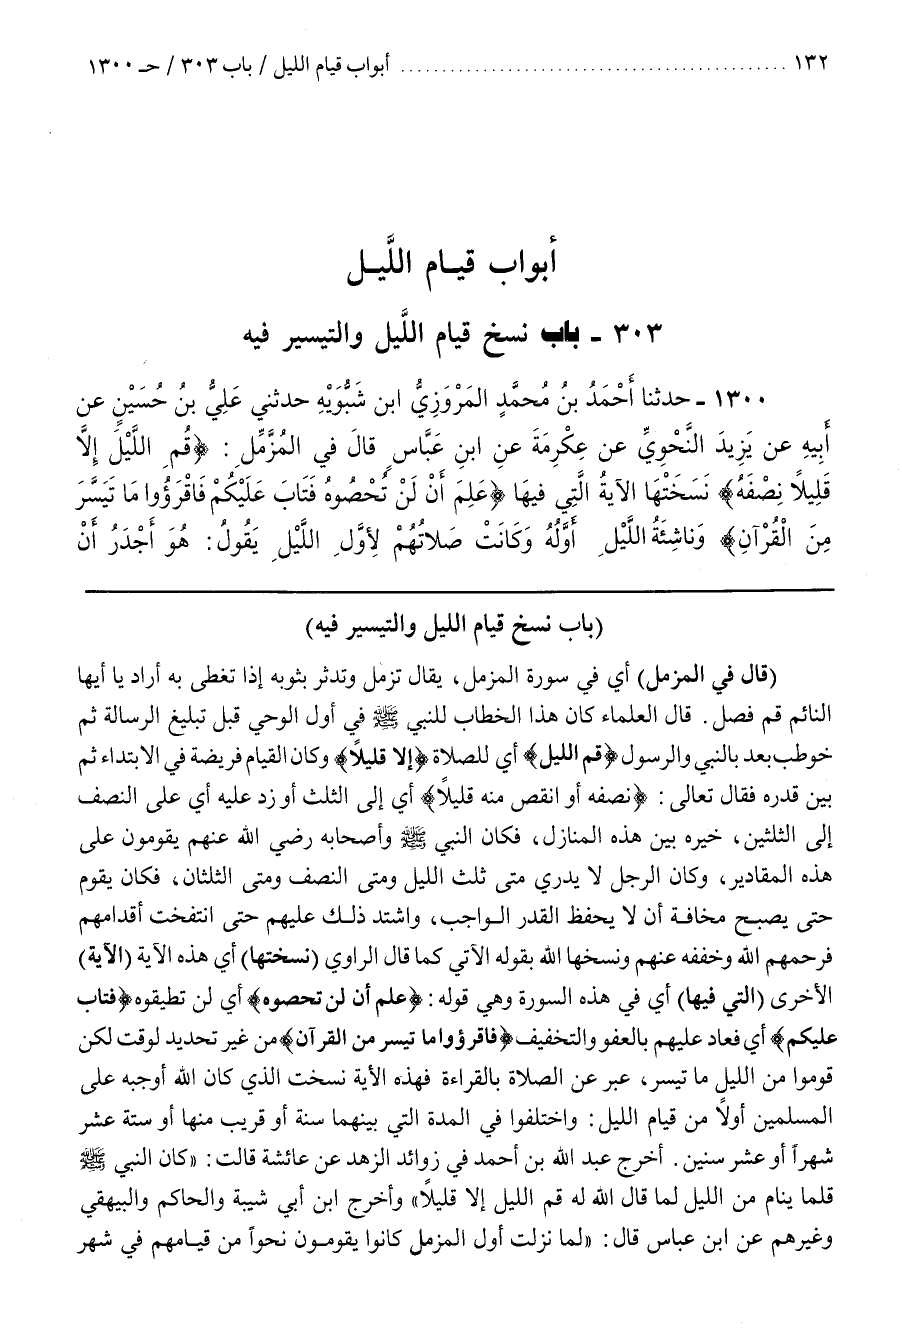 ١٣٢ ........................................ أبواب قيام الليل / باب ٣٠٣ / حـ ١٣٠٠
أبواب قيـام اللَّيـل
٣٠٣ ـ باب نسخ قيام اللَّيل والتيسير فيه
١٣٠٠ ـ حدثنا أَحْمَدُ بنُ مُحمَّدٍ المَرْوَزِيُّ ابن شَبُّوَيْهِ حدثني عَلِيُّ بنُ حُسَيْنٍ عن
أَبِيهِ عن يَزِيدَ النَّحْوِيِّ عن عِكْرِمَةَ عن ابنِ عَبَّاسٍ قالَ في المُزَّمِّلِ: ﴿قُمِ اللَّيْلَ إِلَّا
قَلِيلًا نِصْفَهُ﴾ نَسَخَتْهَا الآيةُ الَّتِي فيهَا ﴿عَلِمَ أَنْ لَنْ تُحْصُوهُ فَتَابَ عَلَيْكُمْ فَاقْرَؤُوا مَا تَيَسَّرَ
مِنَ الْقُرْآنِ﴾ وَنَاشِئَةُ اللَّيْلِ أَوَّلُهُ وَكَانَتْ صَلَاتُهُمْ لِأَوَّلِ اللَّيْلِ يَقُولُ: هُوَ أَجْدَرُ أَنْ
(باب نسخ قيام الليل والتيسير فيه)
(قال في المزمل) أي في سورة المزمل، يقال تزمل وتدثر بثوبه إذا تغطى به أراد يا أيها
النائم قم فصل. قال العلماء كان هذا الخطاب للنبي ﷺ في أول الوحي قبل تبليغ الرسالة ثم
خوطب بعد بالنبي والرسول ﴿قم الليل﴾ أي للصلاة ﴿إلا قليلًا﴾ وكان القيام فريضة في الابتداء ثم
بين قدره فقال تعالى: ﴿نصفه أو انقص منه قليلًا﴾ أي إلى الثلث أو زد عليه أي على النصف
إلى الثلثين، خيره بين هذه المنازل، فكان النبي ﷺ وأصحابه رضي الله عنهم يقومون على
هذه المقادير، وكان الرجل لا يدري متى ثلث الليل ومتى النصف ومتى الثلثان، فكان يقوم
حتى يصبح مخافة أن لا يحفظ القدر الواجب، واشتد ذلك عليهم حتى انتفخت أقدامهم
فرحمهم الله وخففه عنهم ونسخها الله بقوله الآتي كما قال الراوي (نسختها) أي هذه الآية (الآية)
الأخرى (التي فيها) أي في هذه السورة وهي قوله: ﴿علم أن لن تحصوه﴾ أي لن تطيقوه ﴿فتاب
عليكم﴾ أي فعاد عليهم بالعفو والتخفيف ﴿فاقرؤوا ما تيسر من القرآن﴾ من غير تحديد لوقت لكن
قوموا من الليل ما تيسر، عبر عن الصلاة بالقراءة فهذه الأية نسخت الذي كان الله أوجبه على
المسلمين أولًا من قيام الليل: واختلفوا في المدة التي بينهما سنة أو قريب منها أو ستة عشر
شهراً أو عشر سنين. أخرج عبد الله بن أحمد في زوائد الزهد عن عائشة قالت: «كان النبي ﷺ
قلما ينام من الليل لما قال الله له قم الليل إلا قليلًا» وأخرج ابن أبي شيبة والحاكم والبيهقي
وغيرهم عن ابن عباس قال: «لما نزلت أول المزمل كانوا يقومون نحواً من قيامهم في شهر